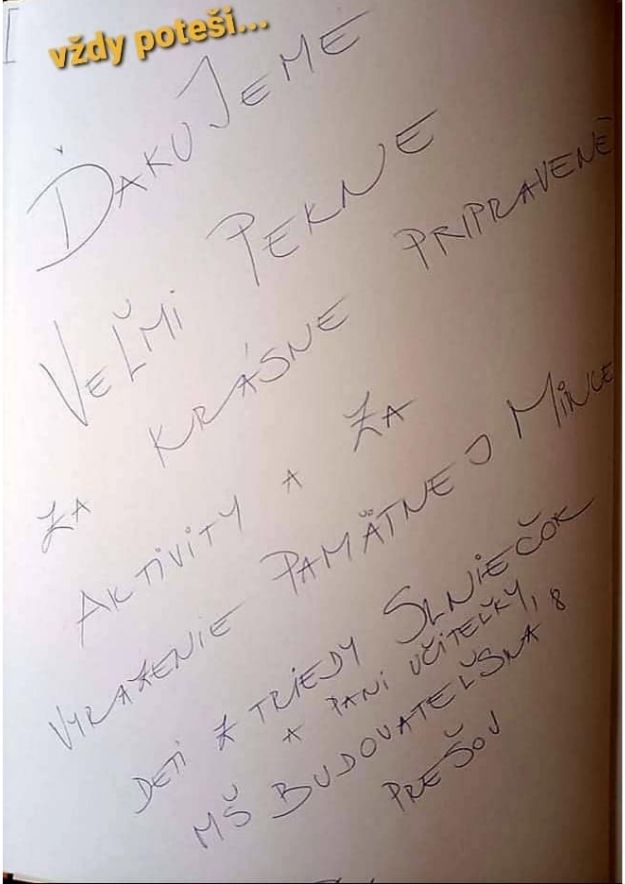 vždy poteší...
ĎAKUJEME
VEĽMI PEKNE
ZA KRÁSNE PRIPRAVENÉ
AKTIVITY A ZA
VYRAZENIE PAMÄTNEJ MINCE
DETI Z TRIEDY SLNIEČOK
A PANI UČITEĽKY,
MŠ BUDOVATEĽSKÁ 8
PREŠOV